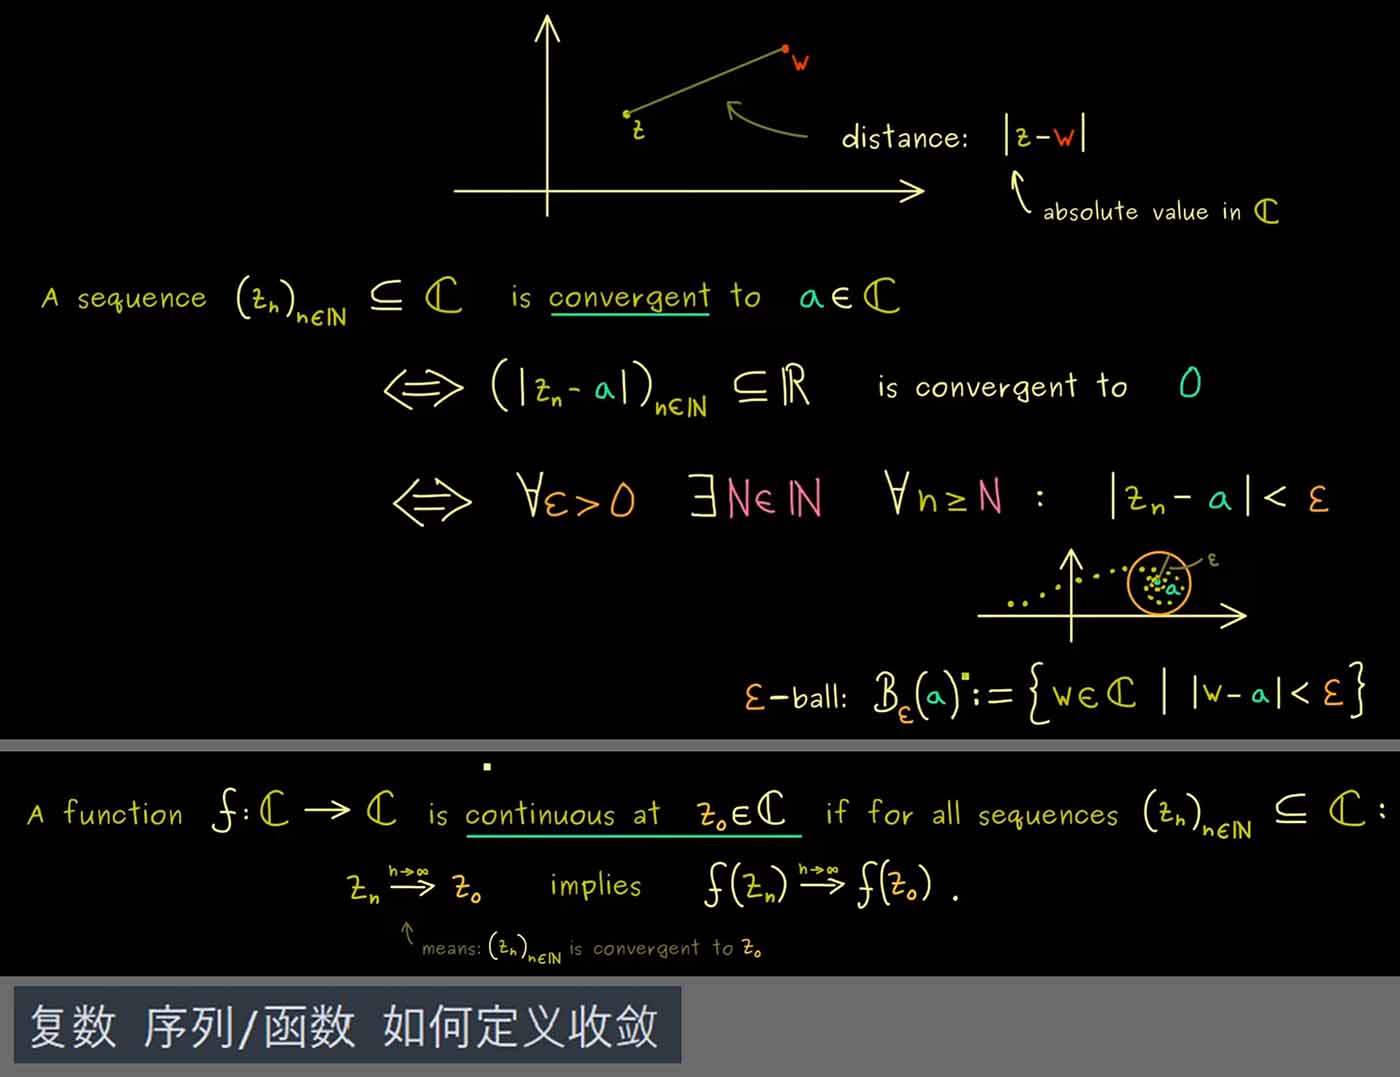 w
z
distance: |z-w|
absolute value in ℂ
A sequence (zₙ)ₙ∈ℕ ⊆ ℂ is convergent to a∈ℂ
⟺ (|zₙ-a|)ₙ∈ℕ ⊆ ℝ is convergent to 0
⟺ ∀ε>0 ∃N∈ℕ ∀n≥N : |zₙ-a|<ε
ε
a
ε-ball: B_ε(a) := {w∈ℂ | |w-a|<ε}
A function f:ℂ→ℂ is continuous at z₀∈ℂ if for all sequences (zₙ)ₙ∈ℕ ⊆ ℂ:
zₙ \xrightarrow{n→∞} z₀ implies f(zₙ) \xrightarrow{n→∞} f(z₀).
means: (zₙ)ₙ∈ℕ is convergent to z₀
复数 序列/函数 如何定义收敛